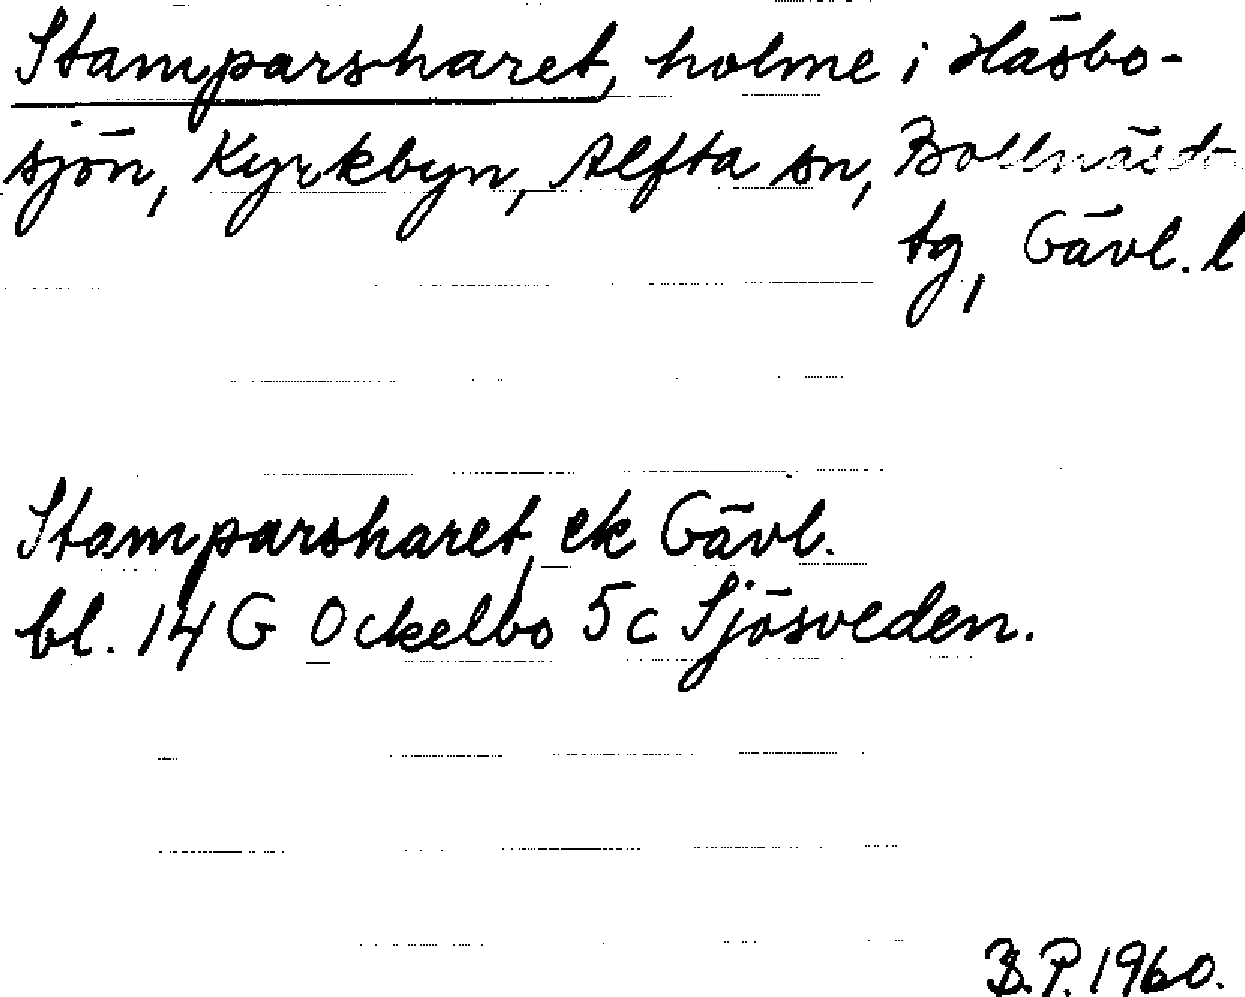 Stamparsharet, holme i Häsbo-
sjön, Kyrkbyn, Alfta sn, Bollnäsd-
tg, Gävl. l
Stamparsharet, ek Gävl.
bl. 14 G Ockelbo 5 c Sjösveden.
B.P. 1960.